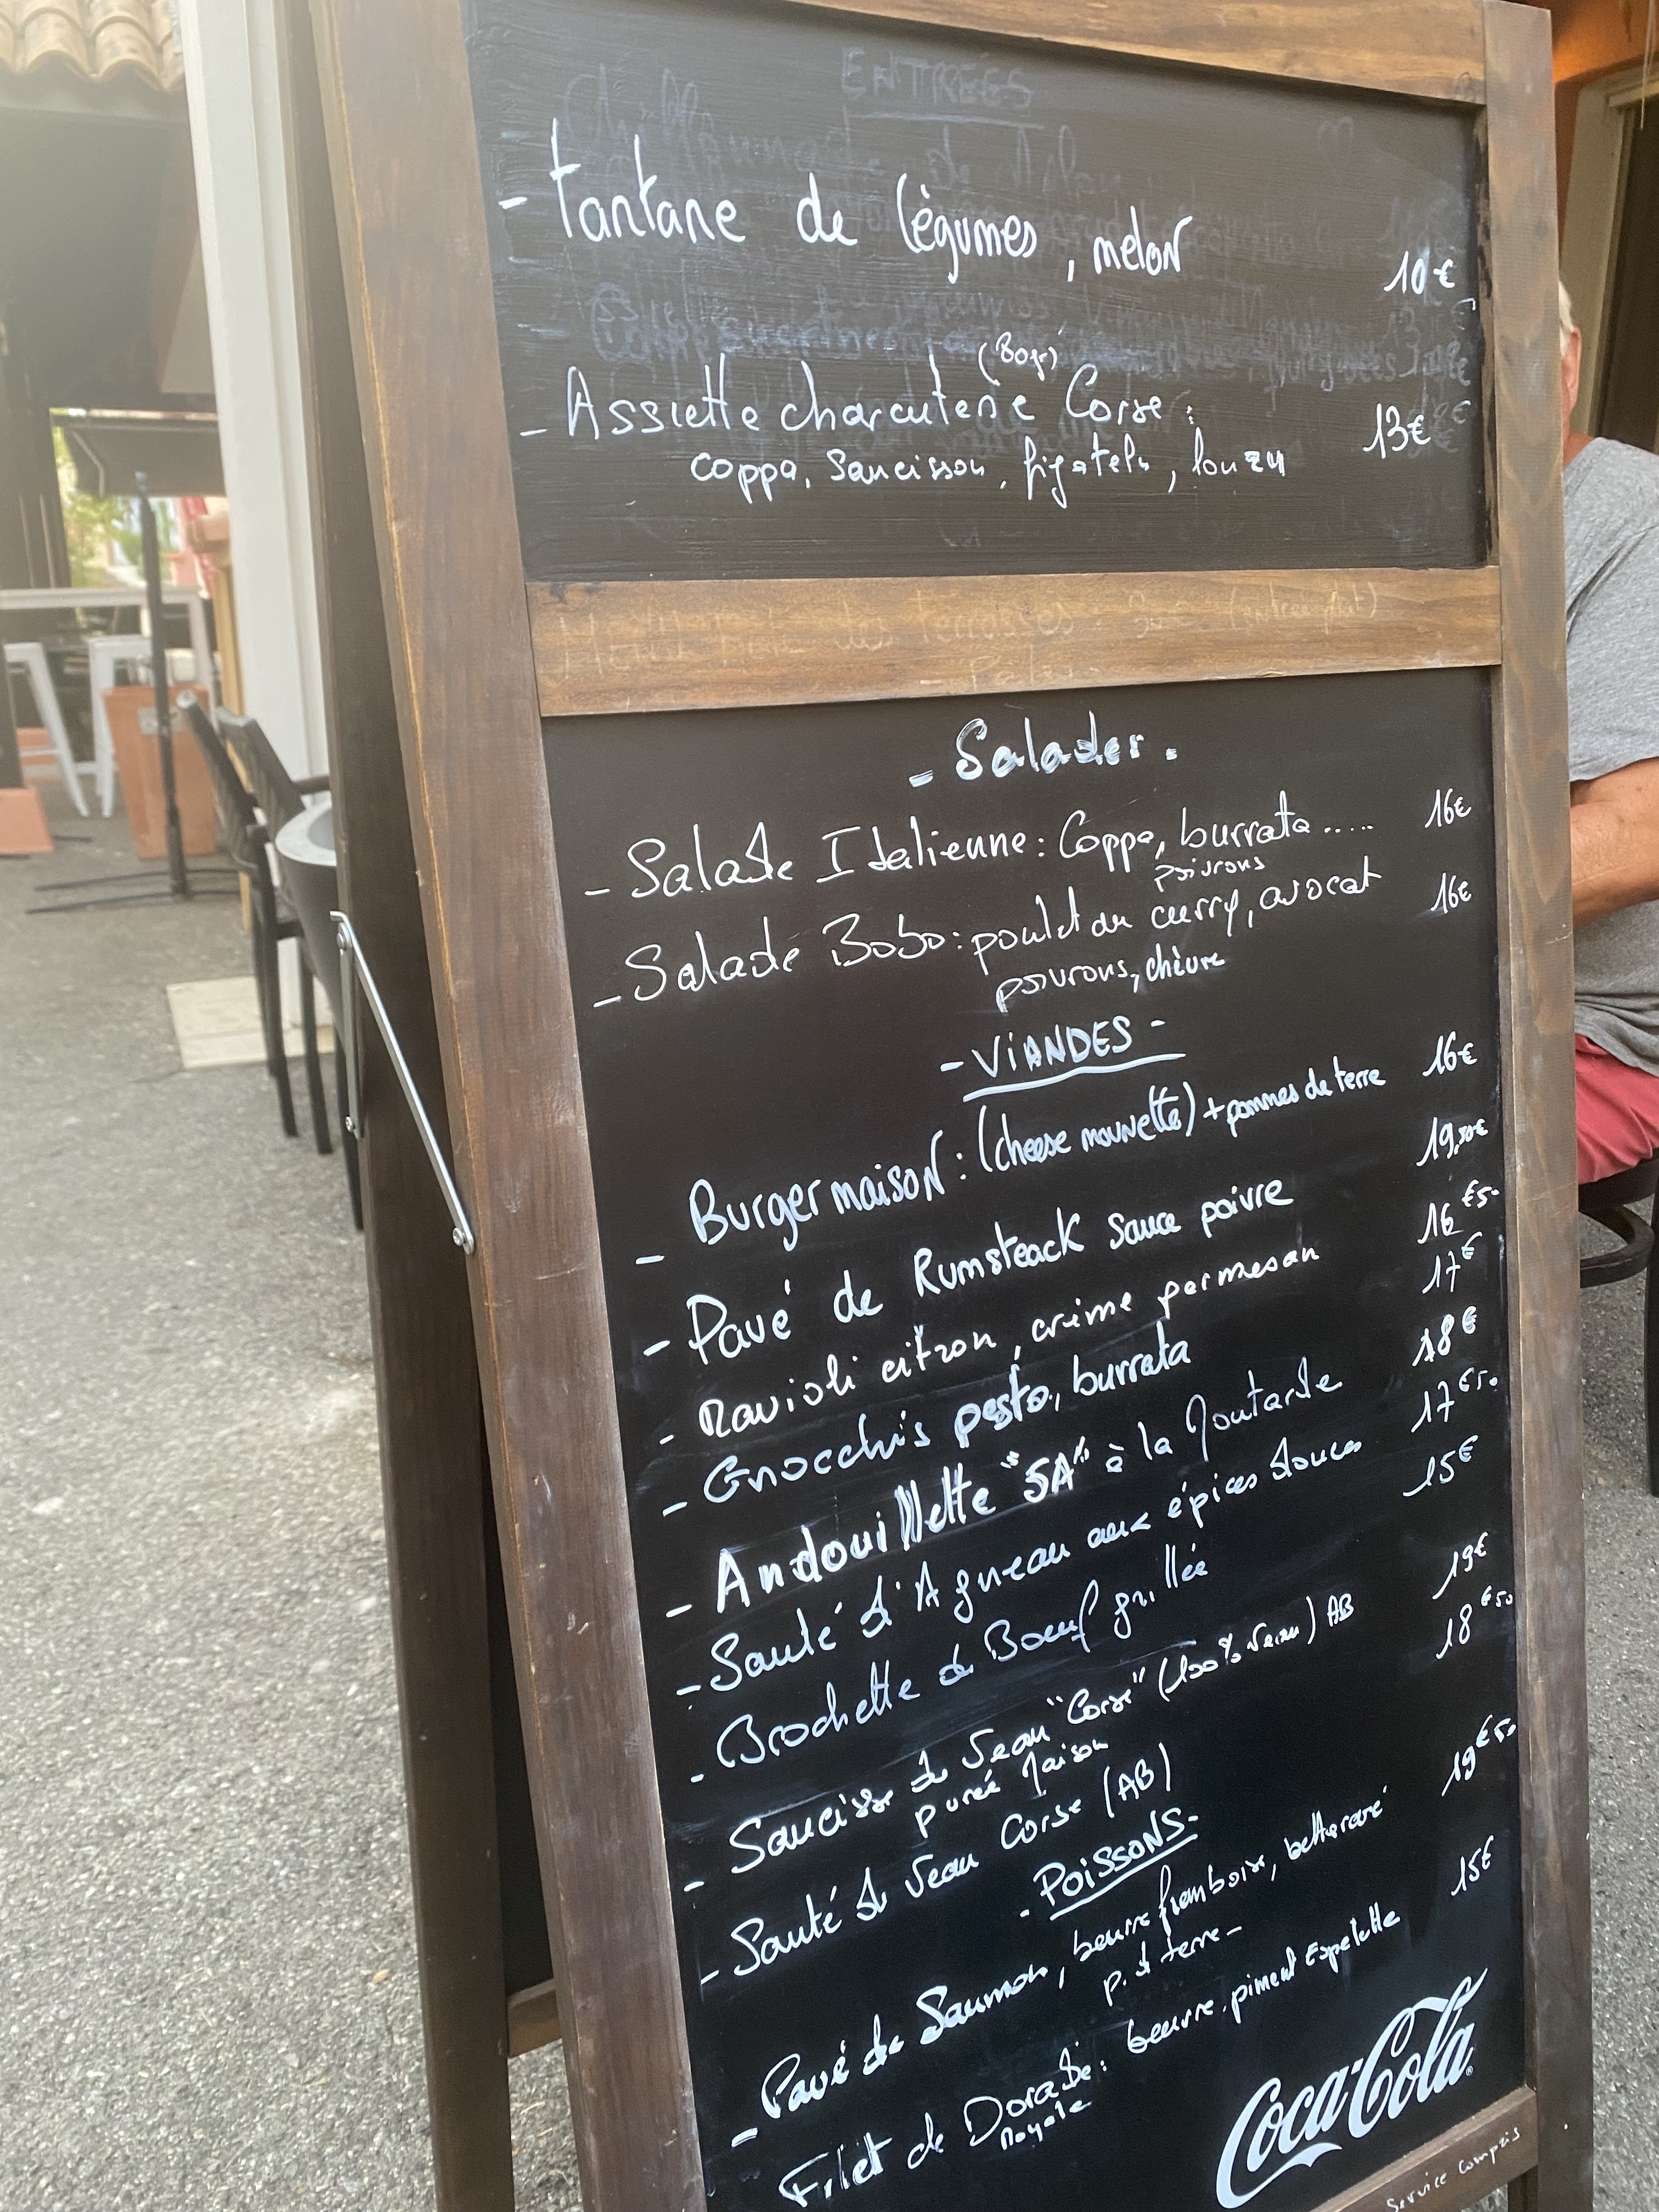 ENTREES
- Tartare de légumes, melon 10€
(Bio)
- Assiette charcuterie Corse : 13€
coppa, saucisson, figatelu, lonzu
- Salades.
- Salade Italienne : Coppa, burrata..... 16€
poivrons
- Salade Bobo : poulet au curry, avocat 16€
poivrons, chèvre
- ViANDES -
- Burger maison : (cheese mounette) + pommes de terre 16€
- Pavé de Rumsteack sauce poivre 19,50€
- Ravioli citron, crème parmesan 16€50
- Gnocchis pesto, burrata 17€
- Andouillette "5A" à la Moutarde 18€
- Sauté d'Agneau aux épices douces 17€50
- Brochette de Boeuf grillée 15€
- Saucisse de Veau "Corse" (100% Veau) AB 19€
purée Maison
- Sauté de Veau Corse (AB) 18€50
- POiSSONS -
- Pavé de Saumon, beurre framboise, betterave 19€50
p. d terre -
Filet de Dorade : beurre, piment Espelette 15€
Royale
Coca-Cola
Service compris